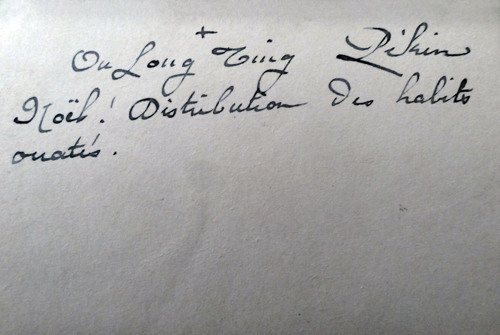 Ou Long Ting Pékin
Noël! Distribution des habits
ouatés.